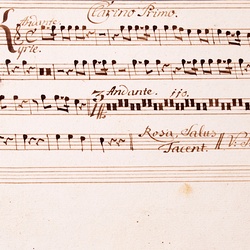 Clarino Primo.
Andante.
Kyrie.
Andante. 110.
Rosa, Salus
Tacent.